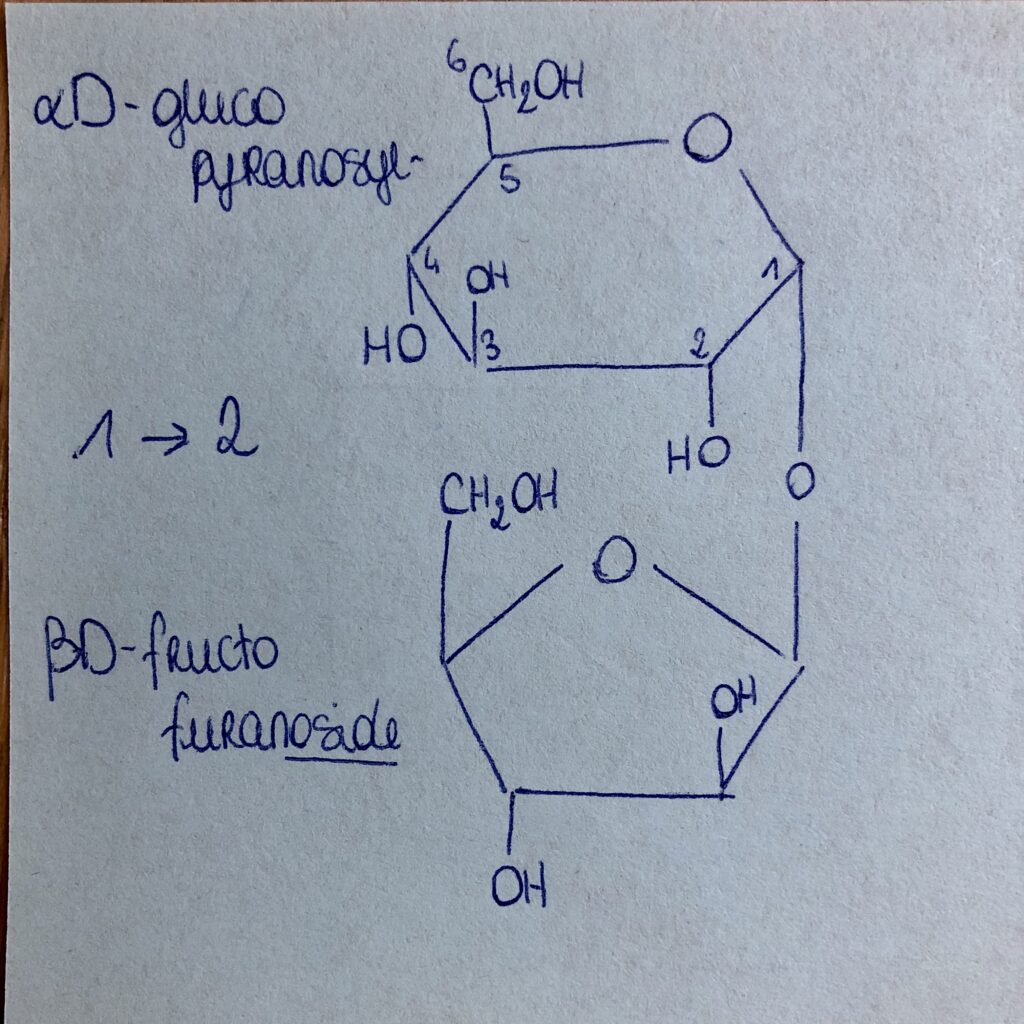 6CH2OH
αD-gluco
O
pyranosyl-
5
4
OH
1
HO
3
2
1 → 2
HO
CH2OH
O
O
βD-fructo
OH
furanoside
OH